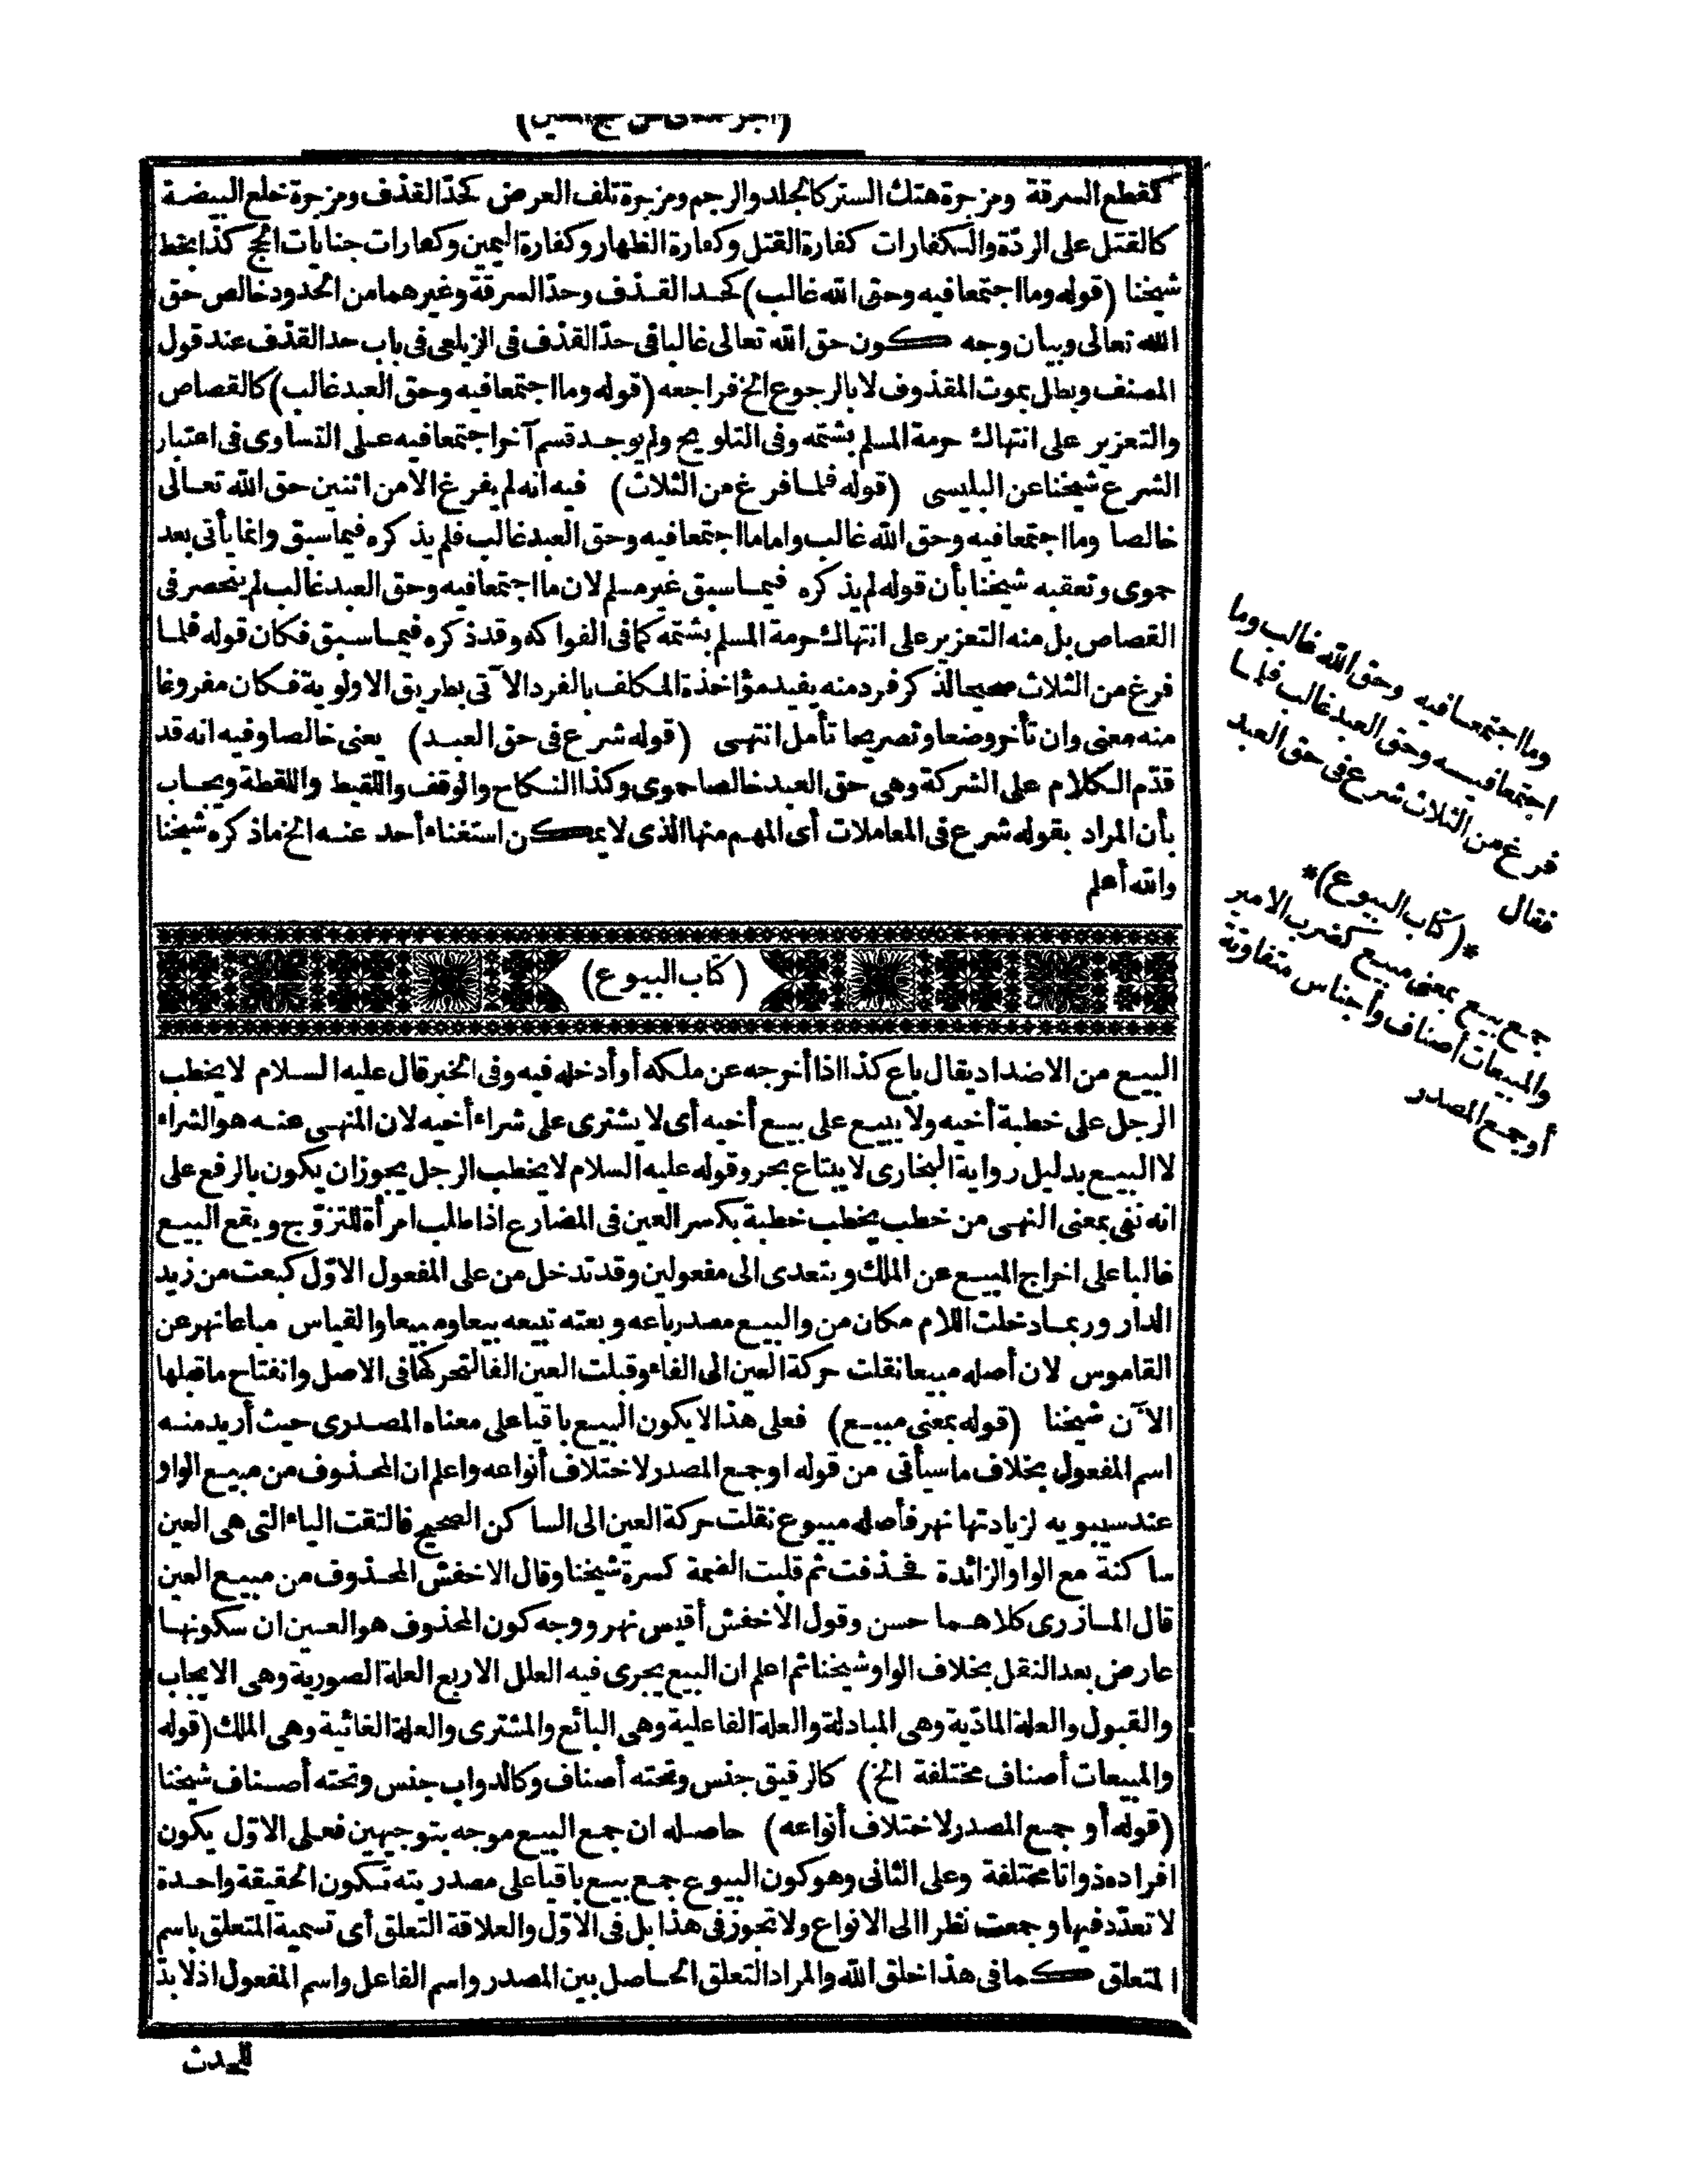 كقطع السرقة ومزجرة هتك الستر كالجلد والرجم ومزجرة تلف العرض كحدّ القذف ومزجرة خلع البيضة
كالقتل على الردّة والكفارات كفارة القتل وكفارة الظهار وكفارة اليمين وكفارات جنايات الحج كذا بخط
شيخنا (قوله وما اجتمعا فيه وحق الله غالب) كحد القذف وحدّ السرقة وغيرهما من الحدود خالص حق
الله تعالى وبيان وجه كون حق الله تعالى غالبا فى حدّ القذف فى الزيلعى فى باب حد القذف عند قول
المصنف وبطل بموت المقذوف لا بالرجوع الخ فراجعه (قوله وما اجتمعا فيه وحق العبد غالب) كالقصاص
والتعزير على انتهاك حرمة المسلم بشتمه وفى التلويح ولم يوجد قسم آخر اجتمعا فيه على التساوى فى اعتبار
الشرع شيخنا عن البليسى (قوله فلما فرغ من الثلاث) فيه انه لم يفرغ الا من اثنين حق الله تعالى
خالصا وما اجتمعا فيه وحق الله غالب واما ما اجتمعا فيه وحق العبد غالب فلم يذكره فيما سبق وانما يأتى بعد
حموى وتعقبه شيخنا بأن قوله لم يذكره فيما سبق غير مسلم لان ما اجتمعا فيه وحق العبد غالب لم ينحصر فى
القصاص بل منه التعزير على انتهاك حرمة المسلم بشتمه كما فى الفواكه وقد ذكره فيما سبق فكان قوله فلما
فرغ من الثلاث صحيحا الذكر فرد منه يفيد مؤاخذة المكلف بالفرد الآتى بطريق الاولوية فكان مفروغا
منه معنى وان تأخر وضعا وتصريحا تأمل انتهى (قوله شرع فى حق العبد) يعنى خالصا وفيه انه قد
قدّم الكلام على الشركة وهى حق العبد خالصا حموى وكذا النكاح والوقف واللقيط واللقطة ويجاب
بأن المراد بقوله شرع فى المعاملات أى المهم منها الذى لا يمكن استغناء أحد عنه الخ ما ذكره شيخنا
والله أعلم
(كتاب البيوع)
البيع من الاضداد يقال باع كذا اذا أخرجه عن ملكه أو أدخله فيه وفى الخبر قال عليه السلام لا يخطب
الرجل على خطبة أخيه ولا يبيع على بيع أخيه أى لا يشترى على شراء أخيه لان المنهى عنه هو الشراء
لا البيع بدليل رواية البخارى لا يبتاع بحر وقوله عليه السلام لا يخطب الرجل يجوز ان يكون بالرفع على
انه نفى بمعنى النهى من خطب يخطب خطبة بكسر العين فى المضارع اذا طلب امرأة للتزوّج ويقع البيع
غالبا على اخراج المبيع عن الملك ويتعدى الى مفعولين وقد تدخل من على المفعول الاوّل كبعت من زيد
الدار وربما دخلت اللام مكان من والبيع مصدر باعه وبعته تبيعه بيعا ومبيعا والقياس مباعا نهر عن
القاموس لان أصله مبيعا نقلت حركة العين الى الفاء وقبلت العين الفا لتحركها فى الاصل وانفتاح ما قبلها
الآن شيخنا (قوله بمعنى مبيع) فعلى هذا لا يكون البيع باقيا على معناه المصدرى حيث أريد منه
اسم المفعول بخلاف ما سيأتى من قوله او جمع المصدر لاختلاف أنواعه واعلم ان المحذوف من مبيع الواو
عند سيبويه لزيادتها نهر فأصله مبيوع نقلت حركة العين الى الساكن الصحيح فالتقت الياء التى هى العين
ساكنة مع الواو الزائدة فحذفت ثم قلبت الضمة كسرة شيخنا وقال الاخفش المحذوف من مبيع العين
قال المازرى كلاهما حسن وقول الاخفش أقيس نهر ووجه كون المحذوف هو العين ان سكونها
عارض بعد النقل بخلاف الواو شيخنا ثم اعلم ان البيع يجرى فيه العلل الاربع العلة الصورية وهى الايجاب
والقبول والعلة المادّية وهى المبادلة والعلة الفاعلية وهى البائع والمشترى والعلة الغائية وهى الملك (قوله
والمبيعات أصناف مختلفة الخ) كالرقيق جنس وتحته أصناف وكالدواب جنس وتحته أصناف شيخنا
(قوله أو جمع المصدر لاختلاف أنواعه) حاصله ان جمع البيع موجه بتوجيهين فعلى الاوّل يكون
افراده ذواتا مختلفة وعلى الثانى وهو كون البيوع جمع بيع باقيا على مصدريته تكون الحقيقة واحدة
لا تعدّد فيها وجمعت نظرا الى الانواع ولا تجوز فى هذا بل فى الاوّل والعلاقة التعلق أى تسمية المتعلق باسم
المتعلق كما فى هذا خلق الله والمراد التعلق الحاصل بين المصدر واسم الفاعل واسم المفعول اذ لا بدّ
للحدث
وما اجتمعا فيه وحق الله غالب وما
اجتمعا فيه وحق العبد غالب فلما
فرغ من الثلاث شرع فى حق العبد
فقال
*(كتاب البيوع)*
جمع بيع بمعنى مبيع كضرب الامير
والمبيعات أصناف وأجناس متفاوتة
أو جمع المصدر